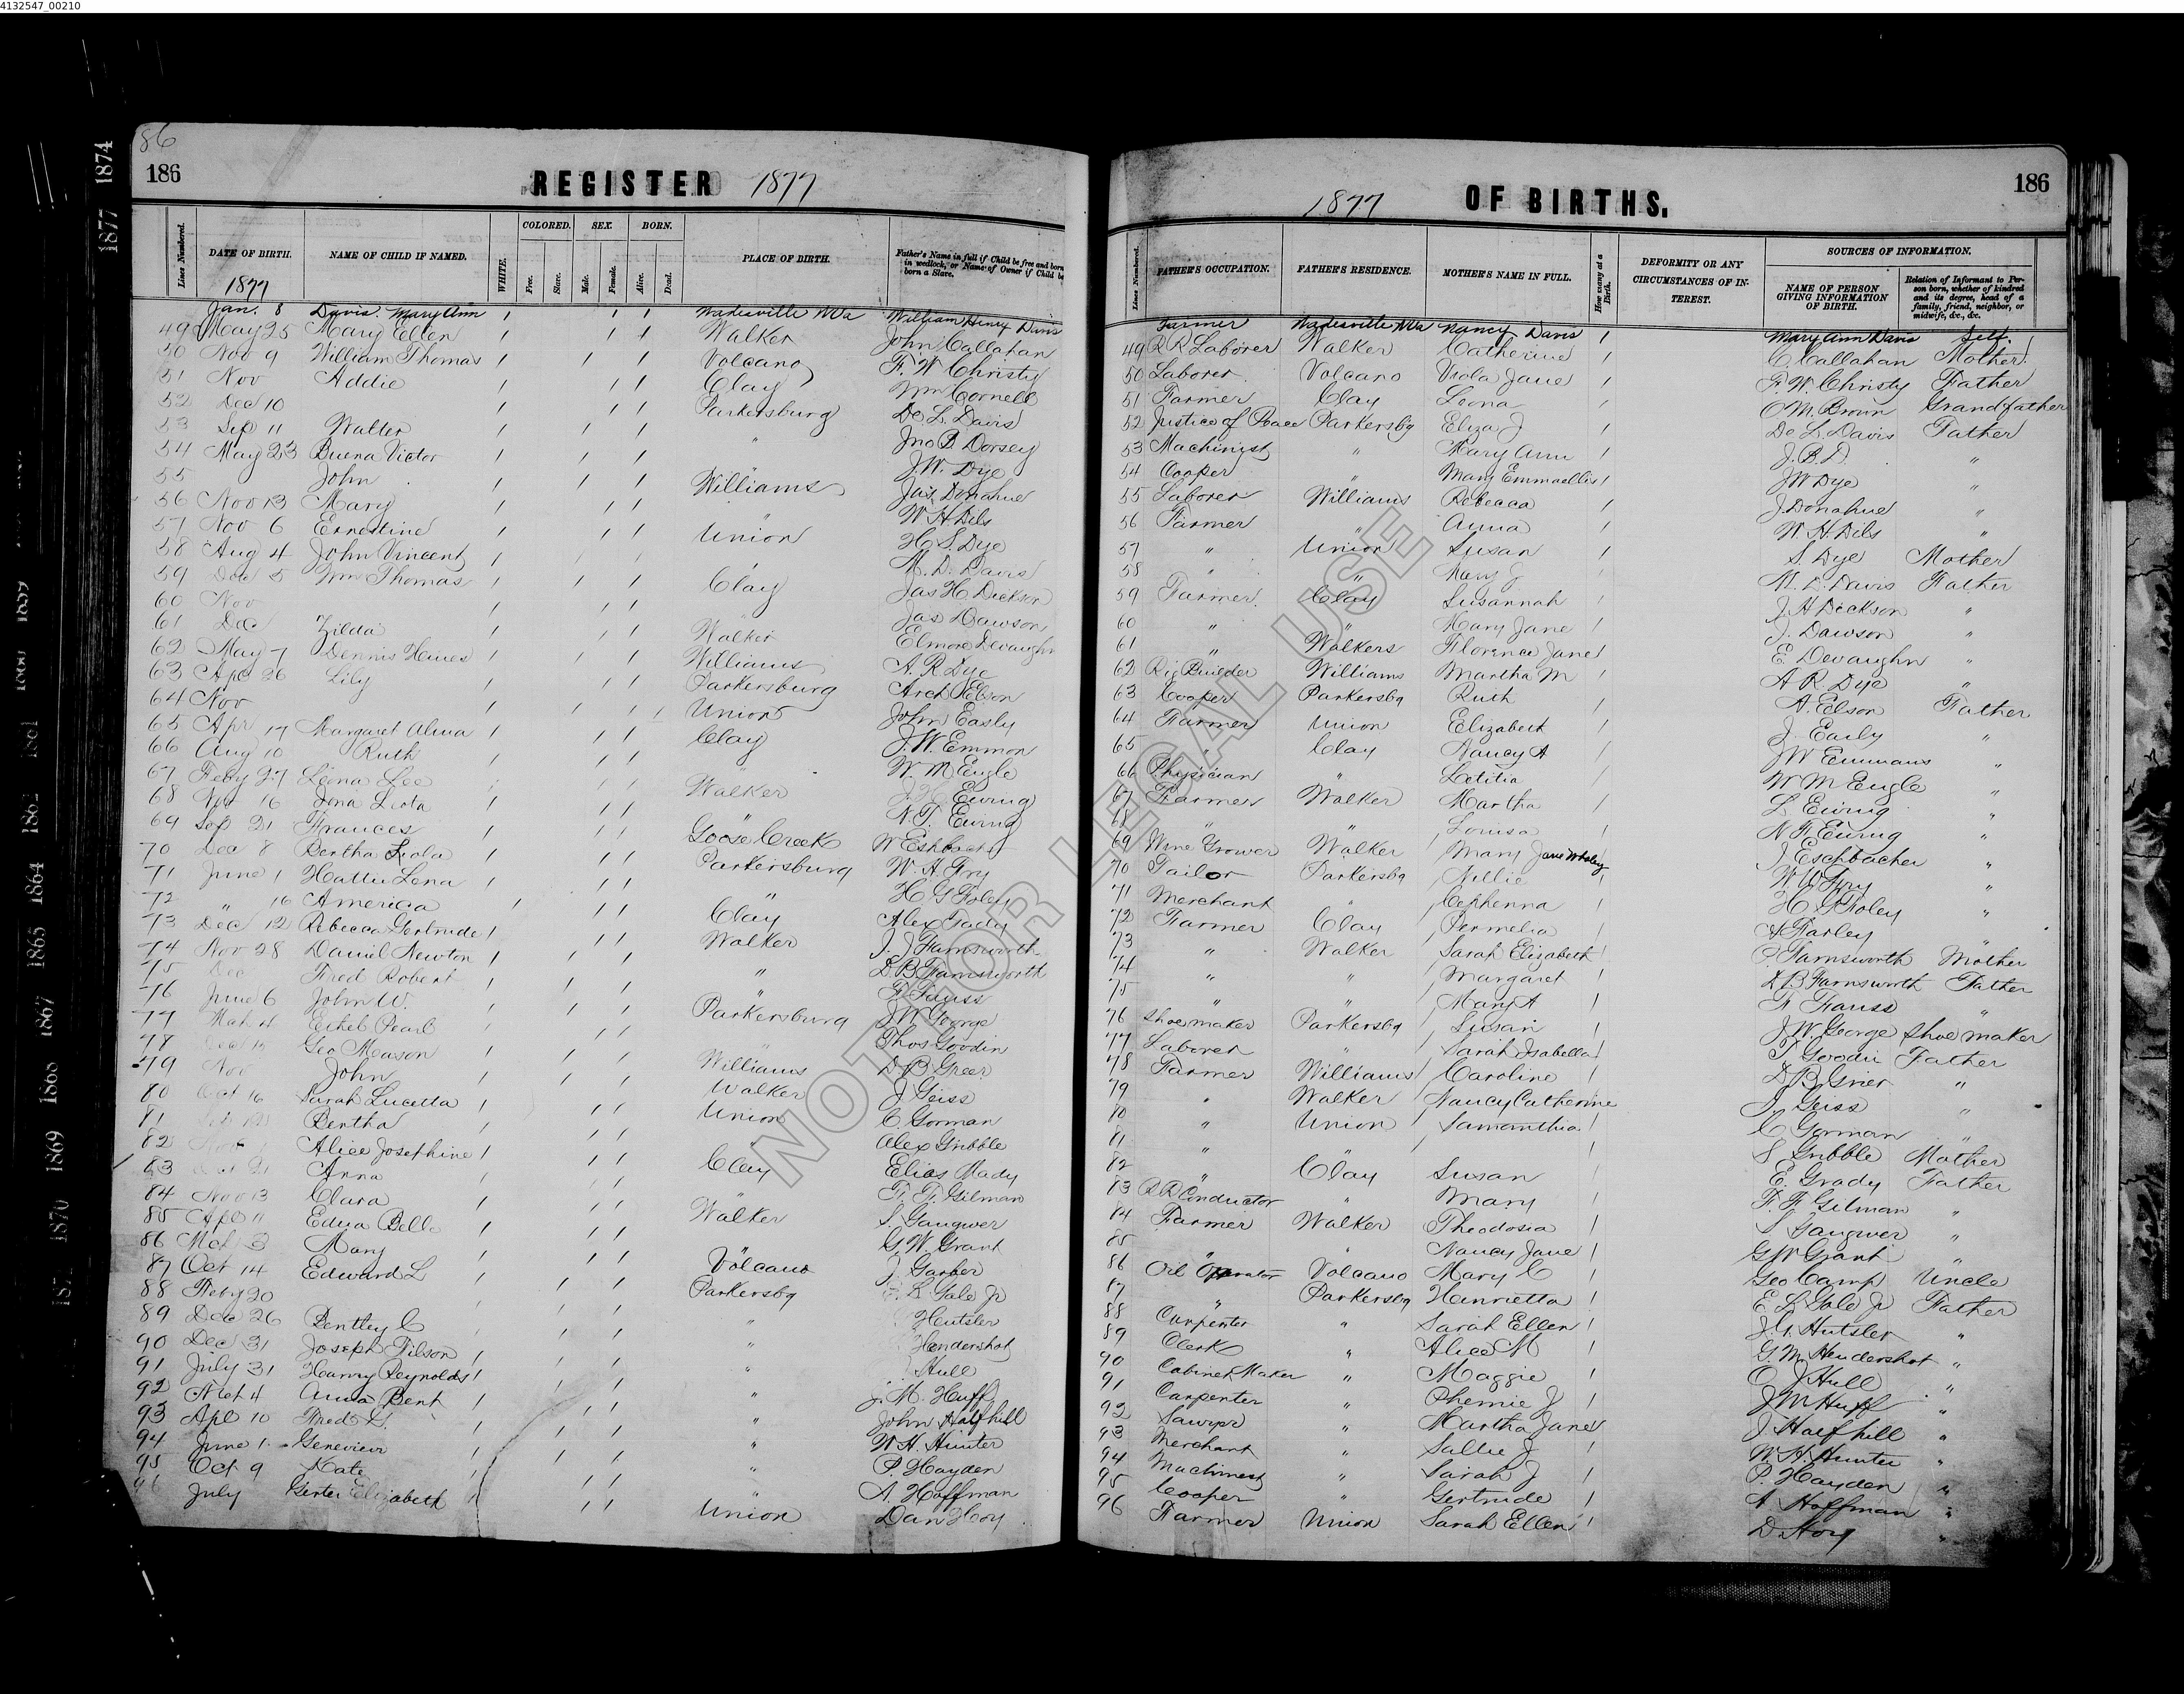 4132547_00210
86
186
REGISTER 1877
Lines Numbered.
DATE OF BIRTH.
1877
NAME OF CHILD IF NAMED.
WHITE.
COLORED.
Free.
Slave.
SEX.
Male.
Female.
BORN.
Alive.
Dead.
PLACE OF BIRTH.
Father's Name in full if Child be free and born in wedlock, or Name of Owner if Child be born a Slave.
Jan. 8 Davis, Mary Ann Wadesville WVa William Henry Davis
49 May 25 Mary Ellen Walker John Callahan
50 Nov 9 William Thomas Volcano F. W. Christy
51 Nov Addie Clay Wm Cornell
52 Dec 10 Parkersburg De L. Davis
53 Sep 11 Walter " Jno B Dorsey
54 May 23 Buena Victor " J. W. Dye
55 John Williams Jas Donahue
56 Nov 13 Mary " W H Dils
57 Nov 6 Ernestine Union H. S. Dye
58 Aug 4 John Vincent " M. D. Davis
59 Dec 5 Wm Thomas Clay Jas H Dickson
60 Nov " Jas Dawson
61 Dec Zilda Walker Elmore Devaughn
62 May 7 Dennis Hines Williams A. R Dye
63 Apl 26 Lily Parkersburg Arch Elson
64 Nov Union John Easly
65 Apr 17 Margaret Alma Clay J. W. Emmon
66 Aug 10 Ruth " W. M Engle
67 Feby 27 Leona Lee Walker Ewing
68 16 Leota " N. F. Ewing
69 Sep 21 Frances Goose Creek W Eshbach
70 Dec 8 Bertha Parkersburg W. A. Fry
71 June 1 Hattie Lena " H G Foley
72 " 16 America Clay Alex
73 Dec 12 Rebecca Gertrude Walker J. J Farnsworth
74 Nov 28 Daniel Newton " D. B Farnsworth
75 Dec Fred Robert " F Fauss
76 June 6 John W. Parkersburg J W George
77 Mch 4 Ethel Pearl " Thos Goodin
78 Geo Meason Williams D B Greer
79 Nov John Walker J Geiss
80 Oct 16 Sarah Lucetta Union C Gorman
81 Bertha " Alex Gribble
82 Nov Alice Josephine Clay Elias
83 Oct 21 Anna " F. F. Gilman
84 Nov 13 Clara Walker S. Gangwer
85 Apl 11 Edna Bell " G. W. Grant
86 Mch 3 Mary Volcano J Garber
87 Oct 14 Edward L Parkersbg E L Gale Jr
88 Feby 20 " Hutsler
89 Dec 26 Bentley C " Hendershot
90 Dec 31 Joseph Tilson " Hull
91 July 31 Harry Reynolds " J. M. Huff
92 Mch 4 Bent " John Halfhill
93 Apl 10 Fred " W H. Hunter
94 June 1 Genevieve " P. Hayden
95 Oct 9 Kate " A. Hoffman
96 July Elizabeth Union Dan Hoy
186
1877 OF BIRTHS.
Lines Numbered.
FATHER'S OCCUPATION.
FATHER'S RESIDENCE.
MOTHER'S NAME IN FULL.
How many at a Birth.
DEFORMITY OR ANY CIRCUMSTANCES OF INTEREST.
SOURCES OF INFORMATION.
NAME OF PERSON GIVING INFORMATION OF BIRTH.
Relation of Informant to Person born, whether of kindred and its degree, head of a family, friend, neighbor, or midwife, &c., &c.
Farmer Wadesville WVa Nancy Davis 1 Mary Ann Davis Self.
49 R R Laborer Walker Catherine 1 C. Callahan Mother
50 Laborer Volcano Viola Jane 1 F. W. Christy Father
51 Farmer Clay Leona 1 O M. Brown Grandfather
52 Justice of Peace Parkersbg Eliza J 1 De L. Davis Father
53 Machinist " Mary Ann 1 J. B. D. "
54 Cooper " Mary Emmaellis 1 J W Dye "
55 Laborer Williams Rebecca 1 J. Donahue "
56 Farmer " Anna 1 W. H. Dils "
57 " Union Susan 1 S. Dye Mother
58 " " Mary J M. D. Davis Father
59 Farmer Clay Susannah 1 J. H Dickson "
60 " " Mary Jane 1 J. Dawson "
61 " Walkers Florence Jane 1 E. Devaughn "
62 Rig Builder Williams Martha M 1 A R Dye "
63 Cooper Parkersbg Ruth 1 A. Elson Father
64 Farmer Union Elizabeth 1 J. Early "
65 " Clay Nancy A 1 J W Emmans "
66 Physician " Letitia 1 W M Engle "
67 Farmer Walker Martha 1 L Ewing "
68 " " Louisa 1 N F. Ewing "
69 Wine Grower Walker Mary Jane Whaley J Eschbacher "
70 Tailor Parkersbg Nellie 1 W W Fry "
71 Merchant " Cephenna 1 H. G Foley "
72 Farmer Clay Permelia 1 A Farley "
73 " Walker Sarah Elizabeth 1 Farnsworth Mother
74 " " Margaret 1 D B Farnsworth Father
75 " " Mary A 1 F Fauss "
76 Shoemaker Parkersbg Susan 1 J. W. George Shoemaker
77 Laborer " Sarah Isabella 1 T. Goodin Father
78 Farmer Williams Caroline 1 D B Grier "
79 " Walker Nancy Catherine J. Geiss "
80 " Union Samanthia 1 C Gorman "
81 " " 1 S Gribble Mother
82 " Clay Susan E. Grady Father
83 R R Conductor " Mary 1 F. F. Gilman "
84 Farmer Walker Theodosia 1 S Gangwer "
85 " " Nancy Jane 1 G W Grant "
86 Oil Operator Volcano Mary C 1 Geo Camp Uncle
87 " Parkersbg Henrietta 1 E L Gale Jr Father
88 Carpenter " Sarah Ellen 1 Hutsler "
89 Clerk " Alice M 1 G. M. Hendershot "
90 Cabinet Maker " Maggie 1 O J Hull "
91 Carpenter " Phemie J 1 J M Huff "
92 Sawyer " Martha Jane J. Halfhill "
93 Merchant " Sallie J 1 W. H. Hunter "
94 Machinest " Sarah J 1 P. Hayden "
95 Cooper " Gertrude 1 A Hoffman "
96 Farmer Union Sarah Ellen 1 D. Hoy "
NOT FOR LEGAL USE
1874
1877
1859
1860
1861
1862
1864
1865
1867
1868
1869
1870